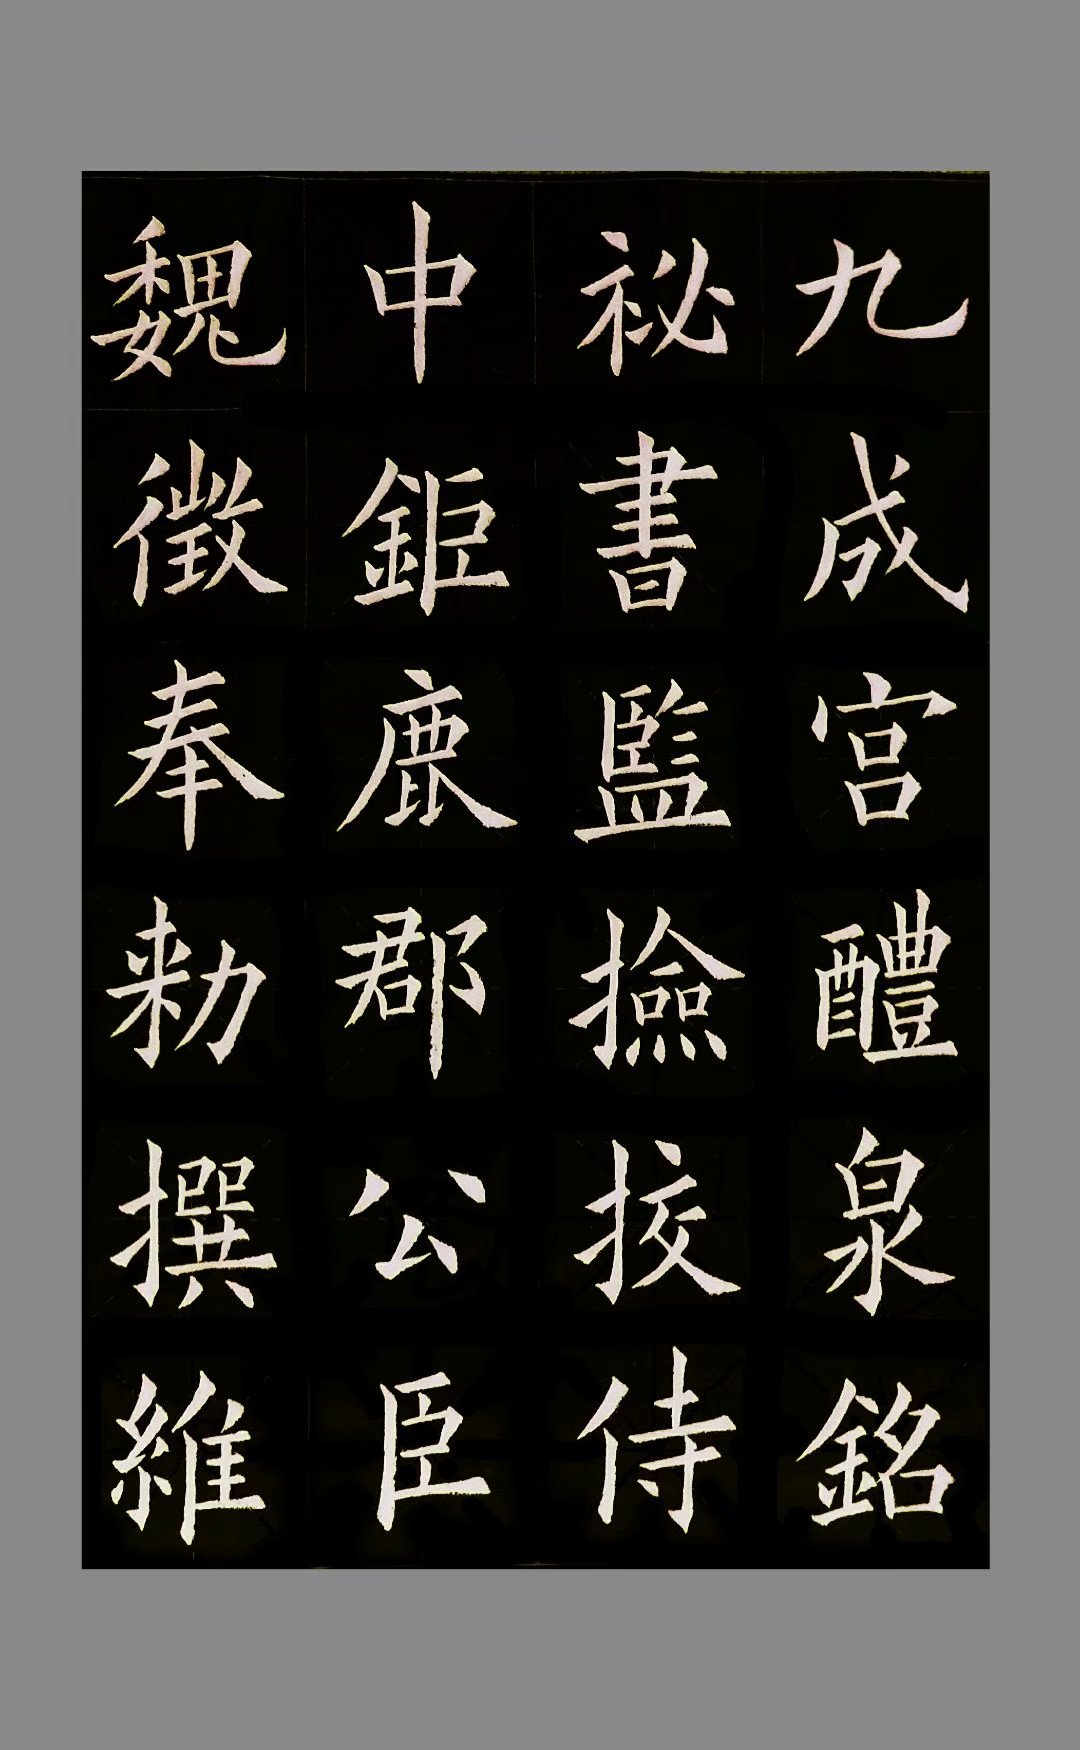 九成宫醴泉銘
祕書監撿挍侍
中鉅鹿郡公臣
魏徵奉勑撰維